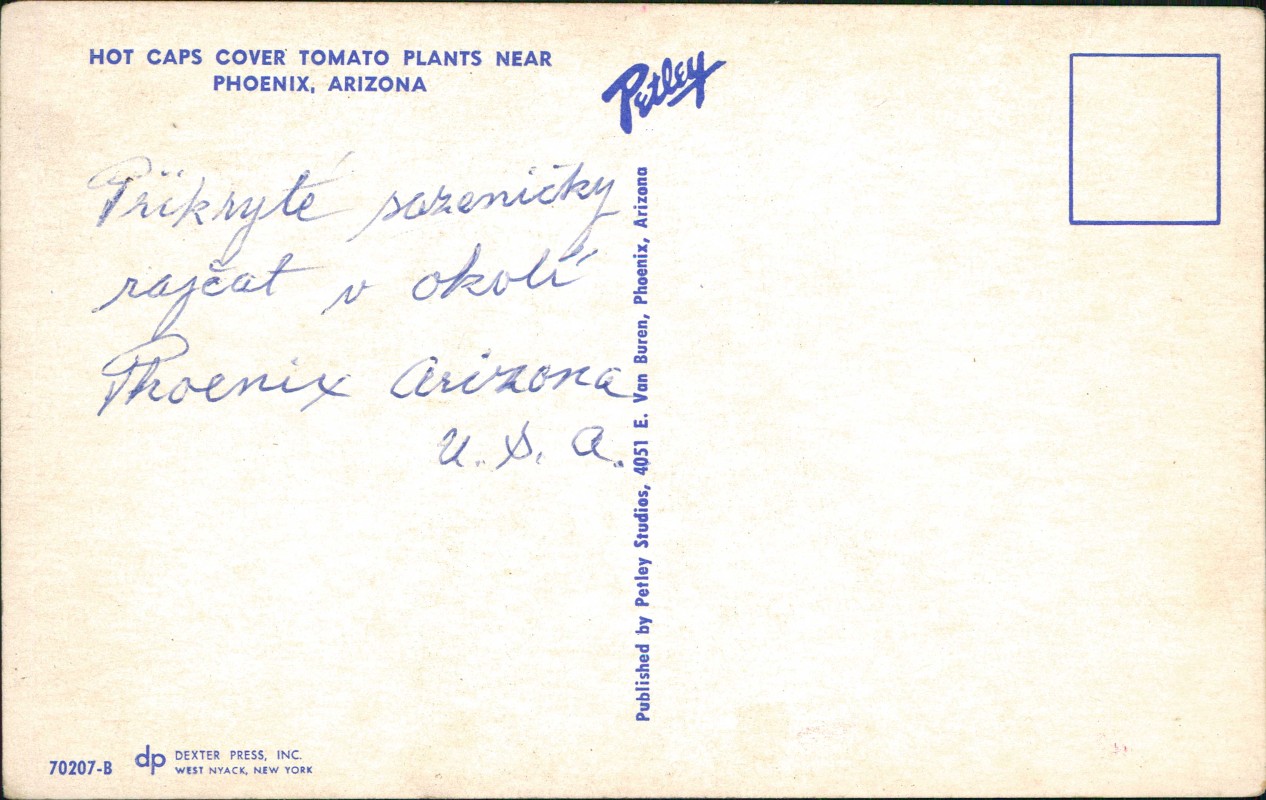 HOT CAPS COVER TOMATO PLANTS NEAR
PHOENIX, ARIZONA
Petley
Přikryté sazeničky
rajčat v okolí
Phoenix Arizona
U. S. A.
Published by Petley Studios, 4051 E. Van Buren, Phoenix, Arizona
70207-B
dp
DEXTER PRESS, INC.
WEST NYACK, NEW YORK